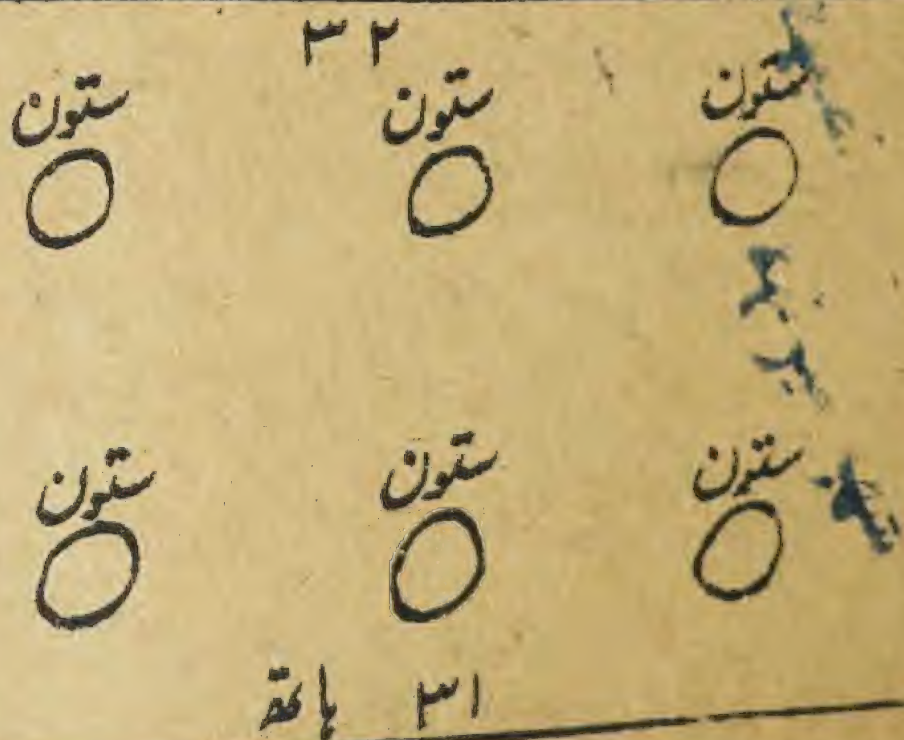 ٣٢
ستون ستون ستون
ستون ستون ستون
٣١ ہاتھ